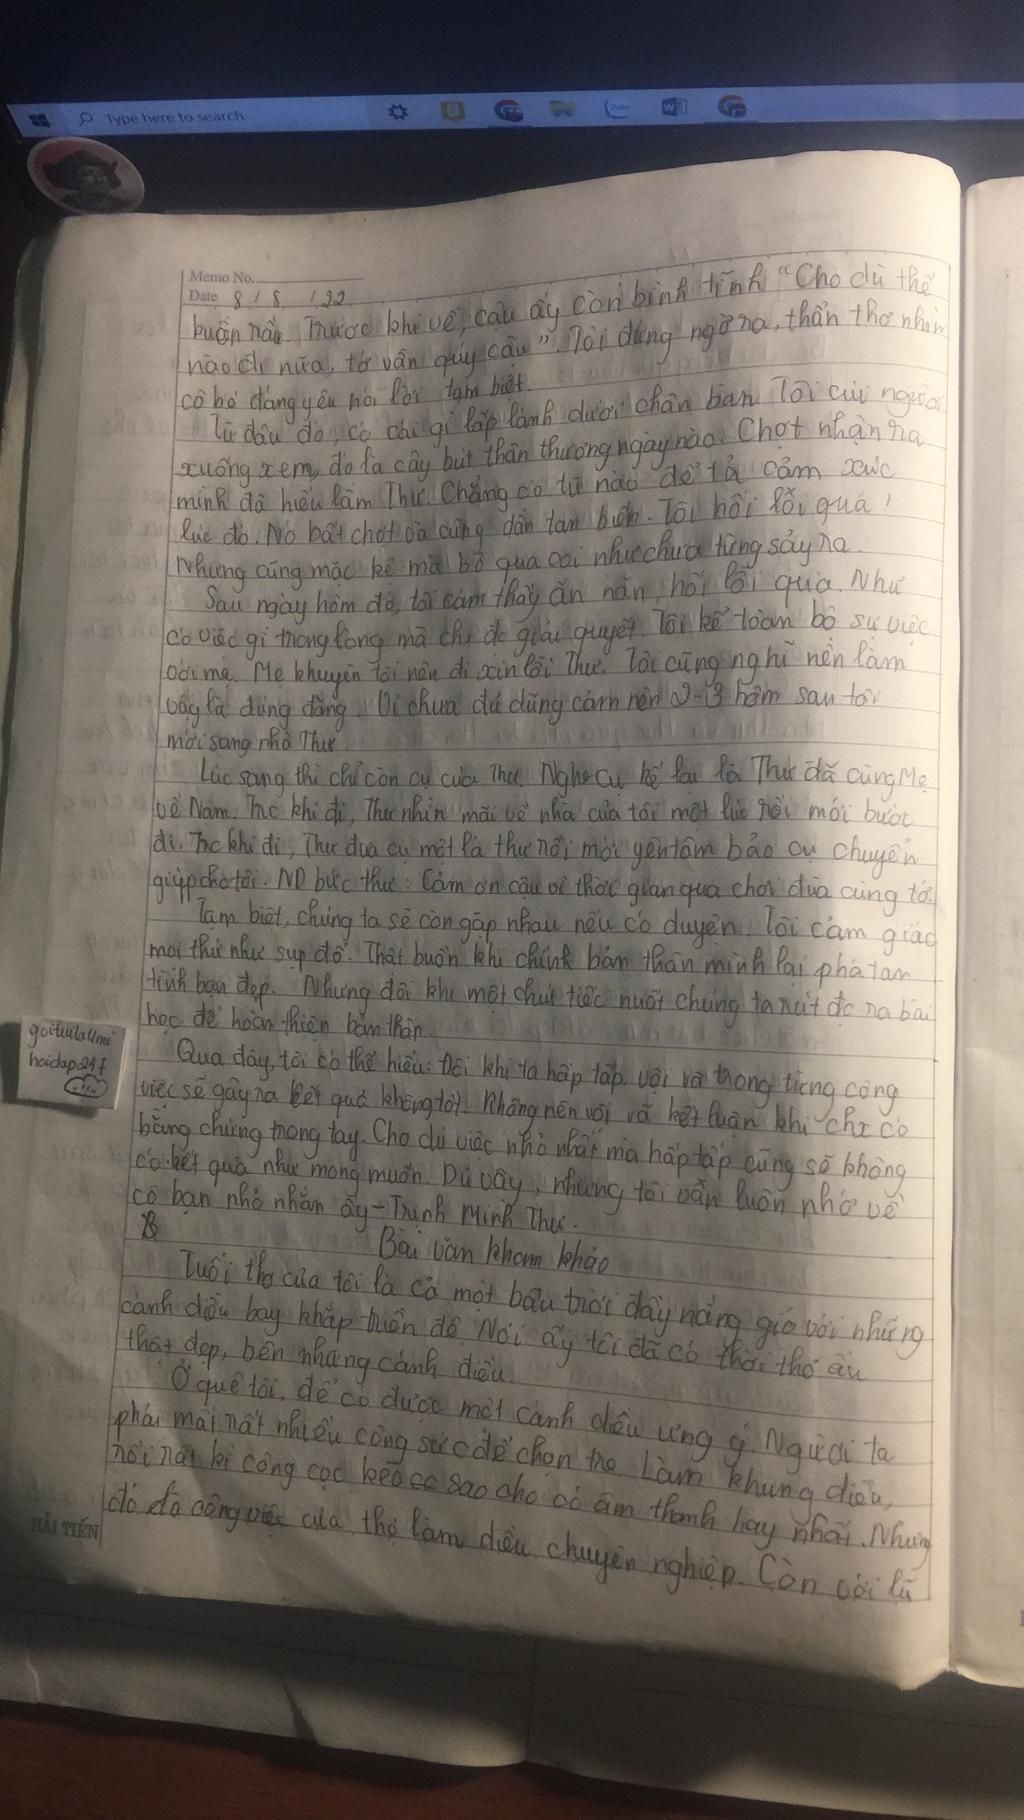 Type here to search
Memo No.
Date 8 / 8 / 22
buồn rầu. Trước khi về, cậu ấy còn bình tĩnh "Cho dù thế
nào đi nữa, tớ vẫn quý cậu". Tôi đứng ngờ ra, thẩn thơ nhìn
cô bé đáng yêu nói lời tạm biệt.
Từ đâu đó, có cái gì lấp lánh dưới chân bàn. Tôi cúi người
xuống xem, đó là cây bút thân thương ngày nào. Chợt nhận ra
mình đã hiểu lầm Thư. Chẳng có từ nào để tả cảm xúc
lúc đó. Nó bất chợt và cũng dần tan biến. Tôi hối lỗi quá!
Nhưng cũng mặc kệ mà bỏ qua coi như chưa từng sảy ra.
Sau ngày hôm đó, tôi cảm thấy ăn năn, hối lỗi quá. Như
có việc gì trong lòng mà chx đc giải quyết. Tôi kể toàn bộ sự việc
với mẹ. Mẹ khuyên tôi nên đi xin lỗi Thư. Tôi cũng nghĩ nên làm
vậy là đúng đắng. Vì chưa đủ dũng cảm nên 2-3 hôm sau tôi
mới sang nhà Thư.
Lúc sang thì chỉ còn cụ của Thư. Nghe cụ kể lại là Thư đã cùng Mẹ
về Nam. Trc khi đi, Thư nhìn mãi về nhà của tôi một lúc rồi mới bước
đi. Trc khi đi, Thư đưa cụ một lá thư rồi mới yên tâm bảo cụ chuyển
giúp cho tôi. ND bức thư: Cảm ơn cậu vì thời gian qua chơi đùa cùng tớ.
Tạm biệt, chúng ta sẽ còn gặp nhau nếu có duyên. Tôi cảm giác
mọi thứ như sụp đổ. Thật buồn khi chính bản thân mình lại phá tan
tình bạn đẹp. Nhưng đôi khi một chút tiếc nuốt chúng ta rút đc ra bài
học để hoàn thiện bản thân.
goituila Umi
hoidap247
Qua đây, tôi có thể hiểu: Đôi khi ta hấp tấp, vội vã trong từng công
việc sẽ gây ra kết quả không tốt. Không nên vội vã kết luận khi chx có
bằng chứng trong tay. Cho dù việc nhỏ nhất mà hấp tấp cũng sẽ không
có kết quả như mong muốn. Dù vậy, nhưng tôi vẫn luôn nhớ về
cô bạn nhỏ nhắn ấy - Trịnh Minh Thư.
Bài văn kham khảo
Tuổi thơ của tôi là cả một bầu trời đầy nắng gió với những
cánh diều bay khắp triền đê. Nơi ấy tôi đã có thời thơ ấu
thật đẹp, bên những cánh diều.
Ở quê tôi, để có được một cánh diều ưng ý. Người ta
phải mất rất nhiều công sức để chọn tre làm khung diều,
rồi rất kì công cọc kẽo sao cho có âm thanh hay nhất. Nhưng
đó là công việc của thợ làm diều chuyên nghiệp. Còn với lũ
HẢI TIẾN